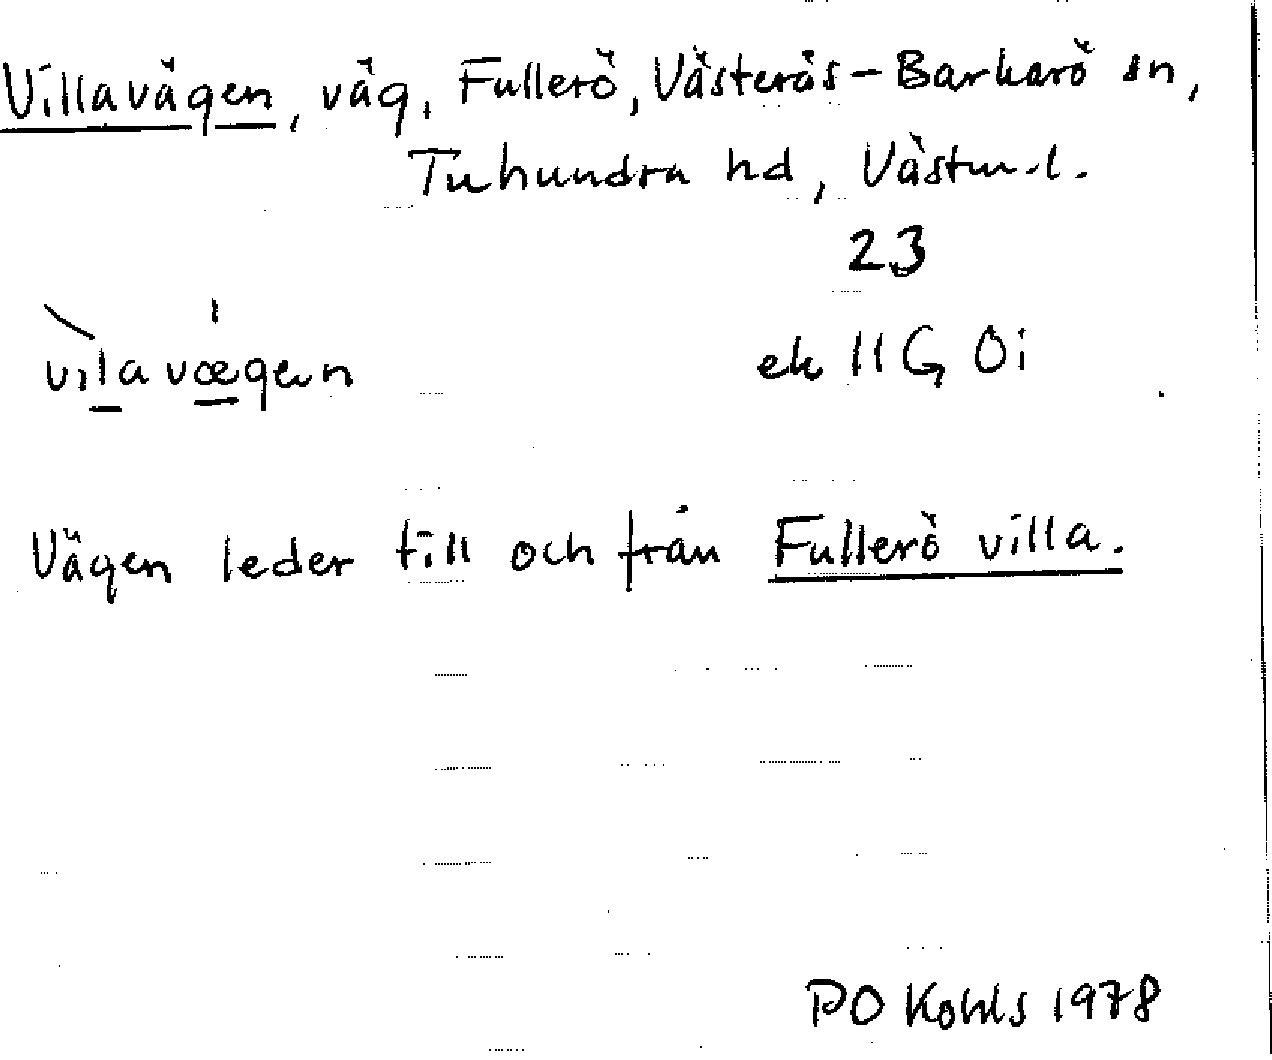 Villavägen, väg, Fullerö, Västerås-Barkarö sn,
Tuhundra hd, Västm.l.
23
vilavægen
ek 11G 0i
Vägen leder till och från Fullerö villa.
PO Kohls 1978